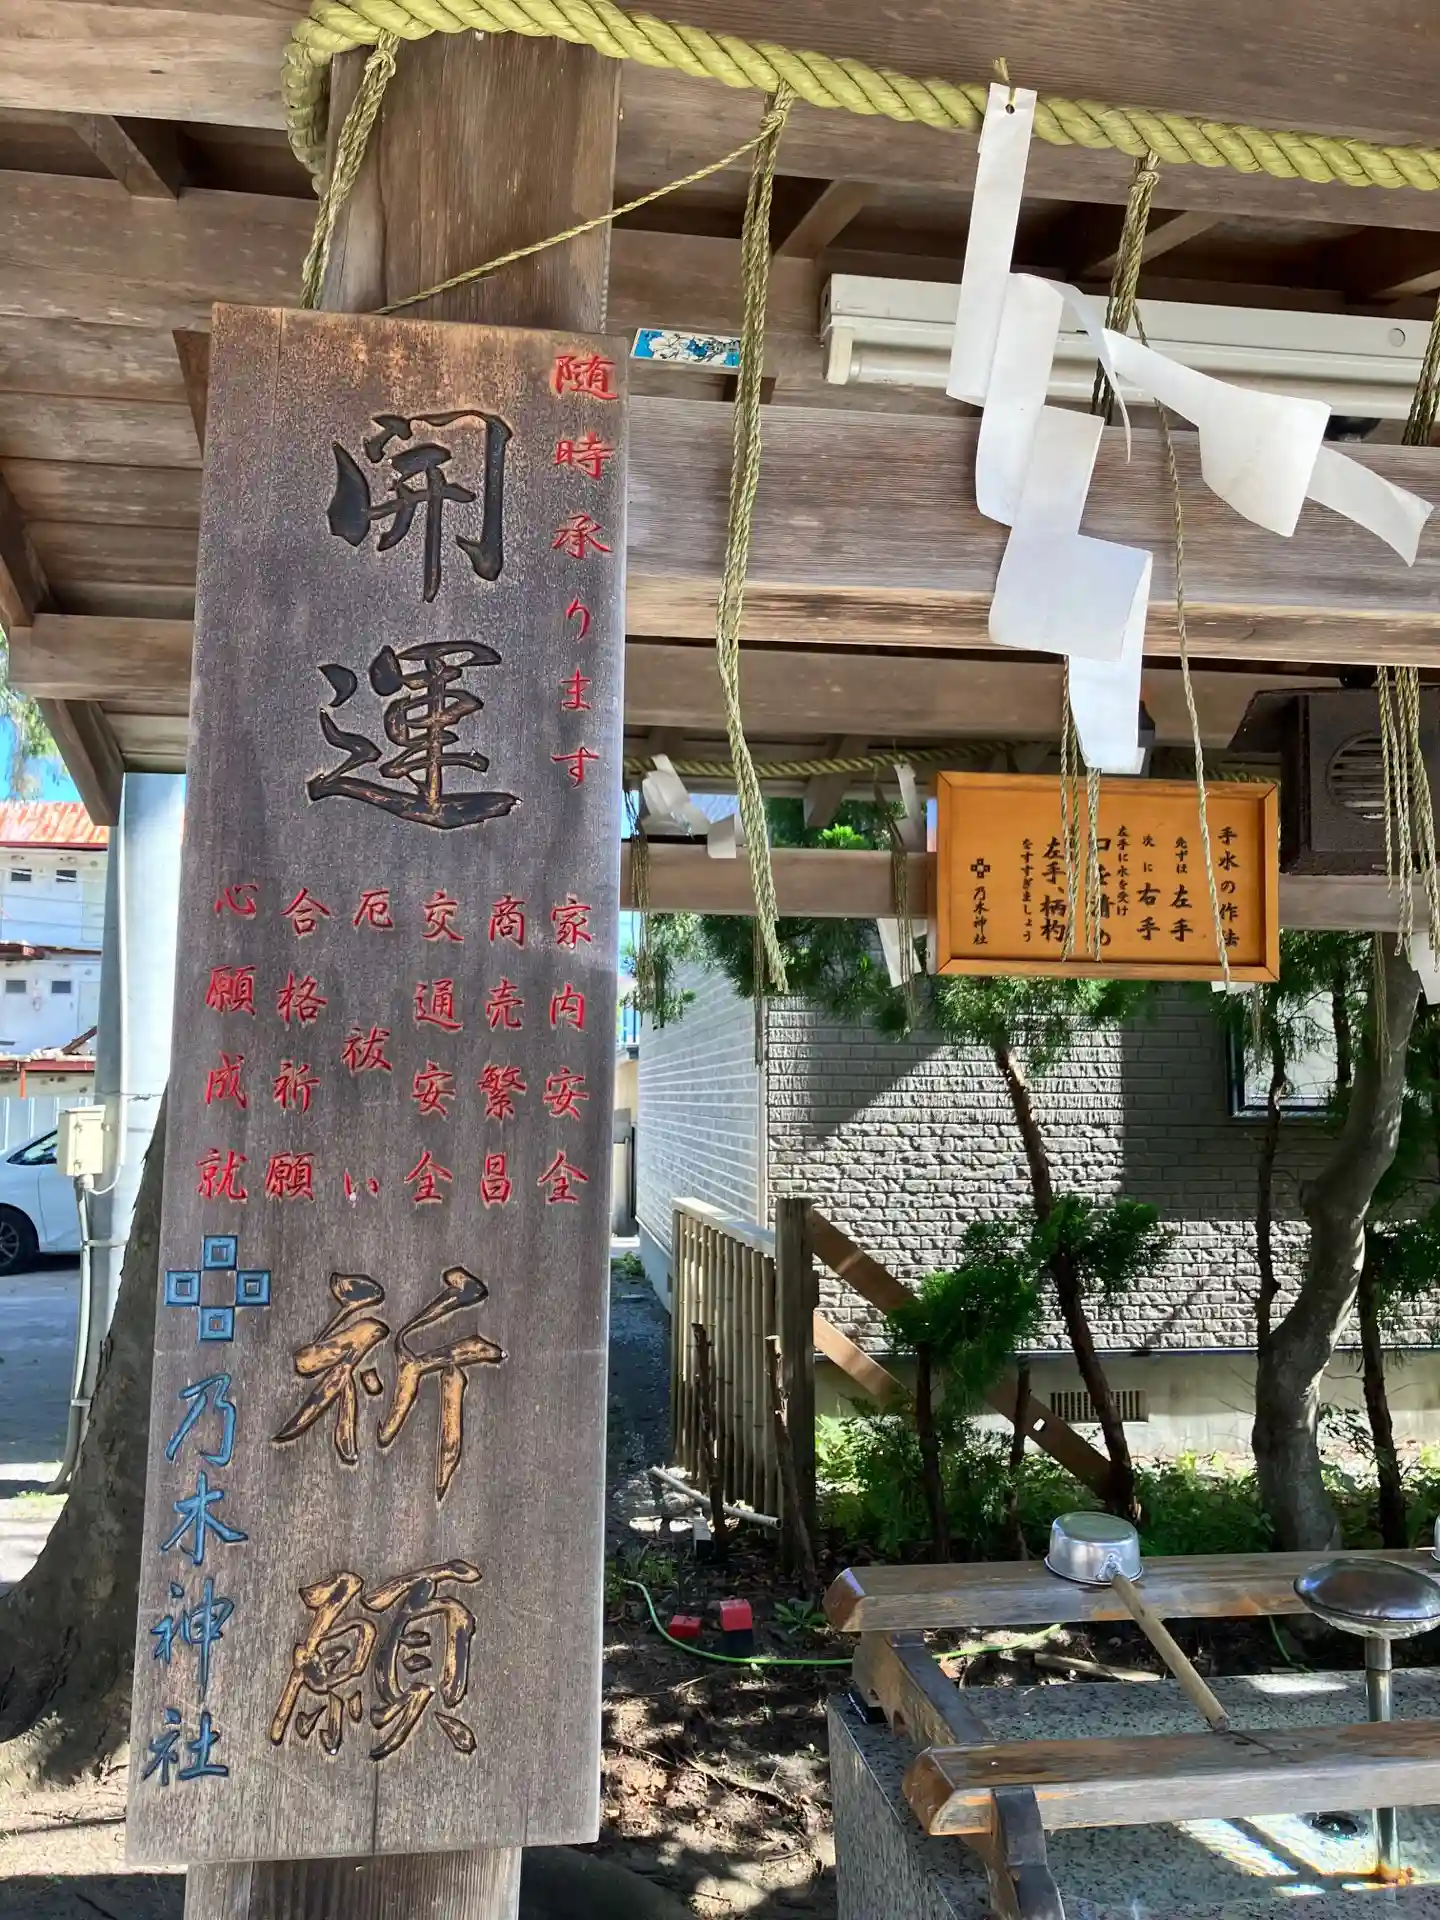 随時承ります
開運
祈願
家内安全
商売繁昌
交通安全
厄祓い
合格祈願
心願成就
乃木神社
手水の作法
先ずは左手
次に右手
左手に水を受け
左手、柄杓
をすすぎましょう
乃木神社